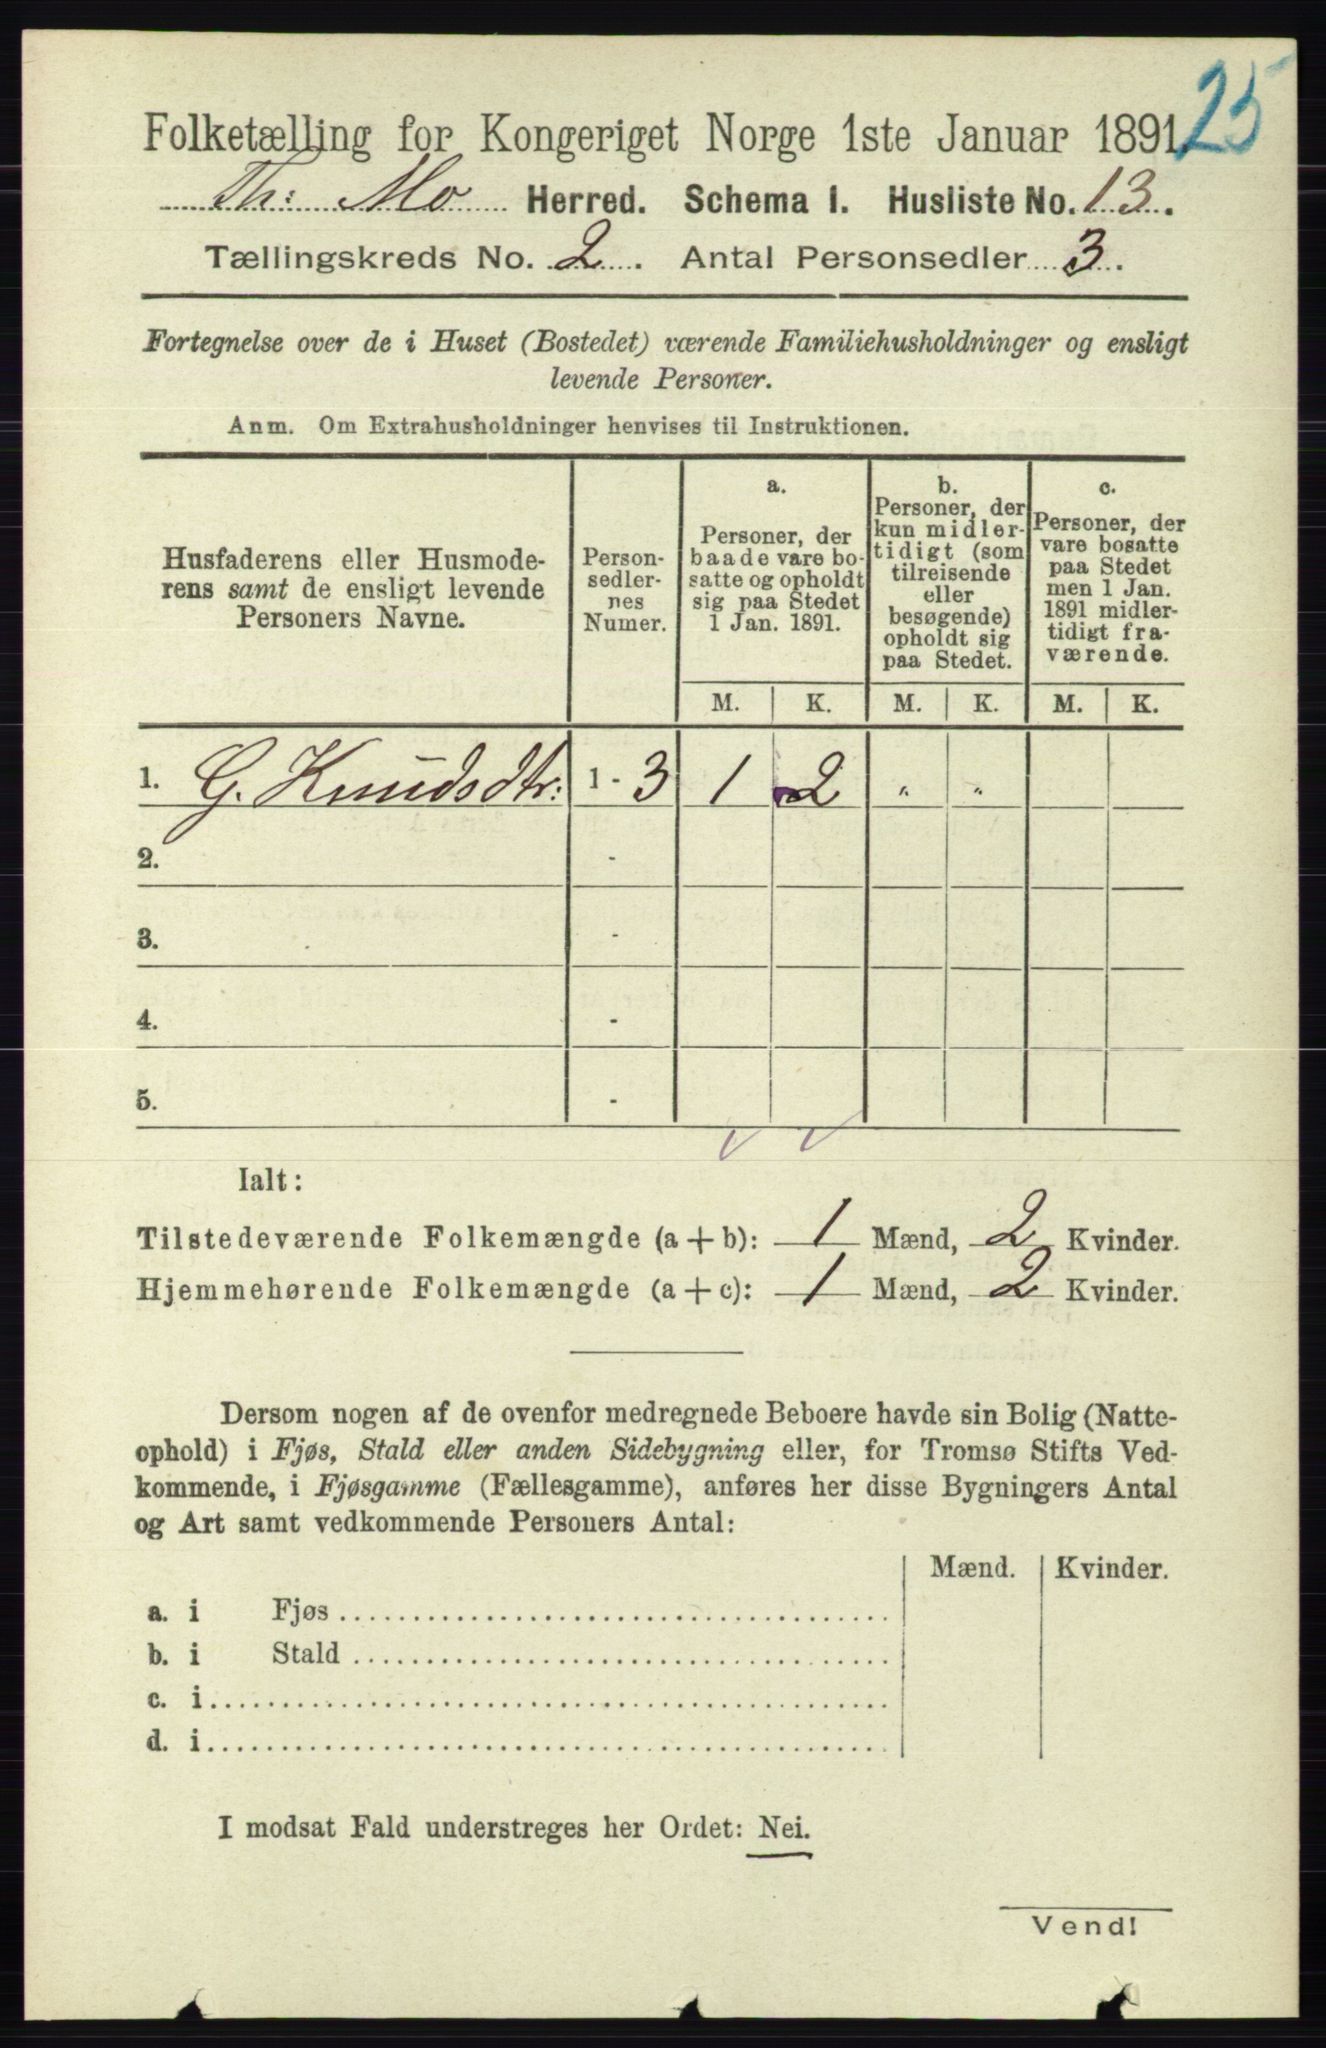 25
Folketælling for Kongeriget Norge 1ste Januar 1891.
Th: Mo Herred. Schema I. Husliste No. 13.
Tællingskreds No. 2. Antal Personsedler 3.
Fortegnelse over de i Huset (Bostedet) værende Familiehusholdninger og ensligt
levende Personer.
Anm. Om Extrahusholdninger henvises til Instruktionen.
Husfaderens eller Husmode-
rens samt de ensligt levende
Personers Navne.
Person-
sedler-
nes
Numer.
a.
Personer, der
baade vare bo-
satte og opholdt
sig paa Stedet
1 Jan. 1891.
b.
Personer, der
kun midler-
tidigt (som
tilreisende
eller
besøgende)
opholdt sig
paa Stedet.
c.
Personer, der
vare bosatte
paa Stedet
men 1 Jan.
1891 midler-
tidigt fra-
værende.
M. K. M. K. M. K.
1. G. Knudsdtr: 1 - 3 1 2 " "
2. -
3. -
4. -
5. -
Ialt:
Tilstedeværende Folkemængde (a + b): 1 Mænd, 2 Kvinder.
Hjemmehørende Folkemængde (a + c): 1 Mænd, 2 Kvinder.
Dersom nogen af de ovenfor medregnede Beboere havde sin Bolig (Natte-
ophold) i Fjøs, Stald eller anden Sidebygning eller, for Tromsø Stifts Ved-
kommende, i Fjøsgamme (Fællesgamme), anføres her disse Bygningers Antal
og Art samt vedkommende Personers Antal:
Mænd. Kvinder.
a. i Fjøs
b. i Stald
c. i
d. i
I modsat Fald understreges her Ordet: Nei.
Vend!